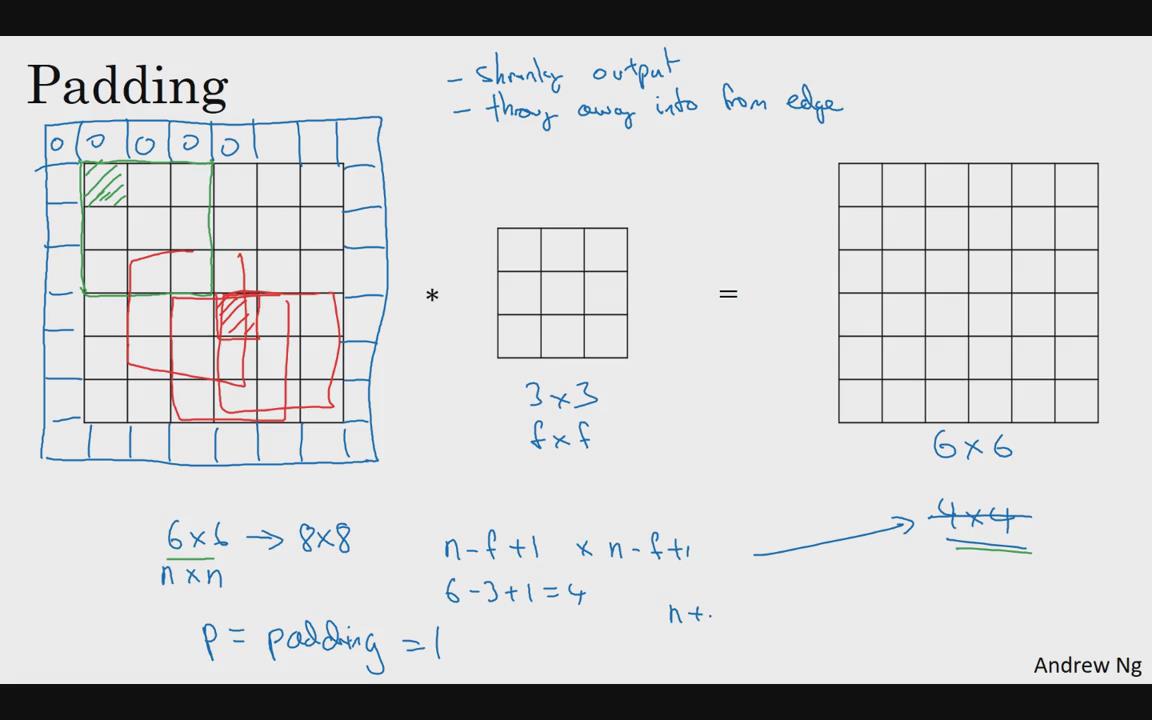 Padding
- shrinky output
- throw away info from edge
0 0 0 0 0
*
=
3 x 3
f x f
6 x 6
6 x 6 → 8 x 8
n x n
n - f + 1 x n - f + 1
6 - 3 + 1 = 4
4 x 4
n +
p = padding = 1
Andrew Ng